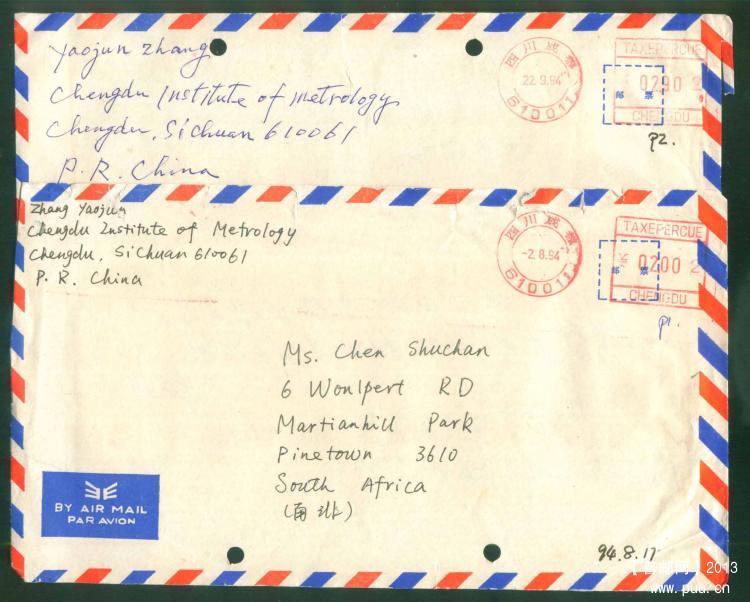 Yaojun Zhang
Chengdu Institute of Metrology
Chengdu, Sichuan 610061
P. R. China
四川成都
22.9.94
610011
TAXEPERCUE
0290 2
邮 票
CHENGDU
P2.
Zhang Yaojun
Chengdu Institute of Metrology
Chengdu, Sichuan 610061
P. R. China
四川成都
-2.8.94
610011
TAXEPERCUE
0200 2
邮 票
CHENGDU
P1.
Ms. Chen Shuchan
6 Wonlpert RD
Martianhill Park
Pinetown 3610
South Africa
(南非)
BY AIR MAIL
PAR AVION
94.8.17
2013
www.pua.cn